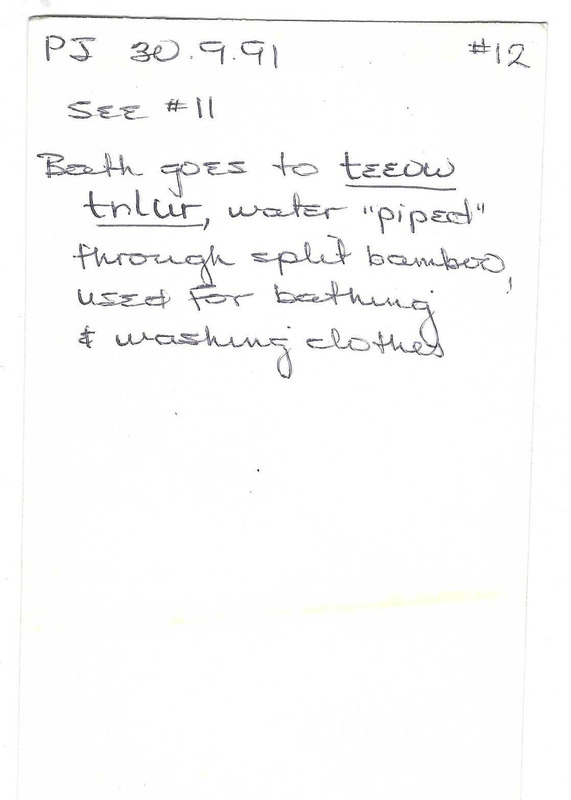 PJ 30.9.91 #12
SEE #11
Path goes to teeow
tnlur, water "piped"
through split bamboo,
used for bathing
& washing clothes